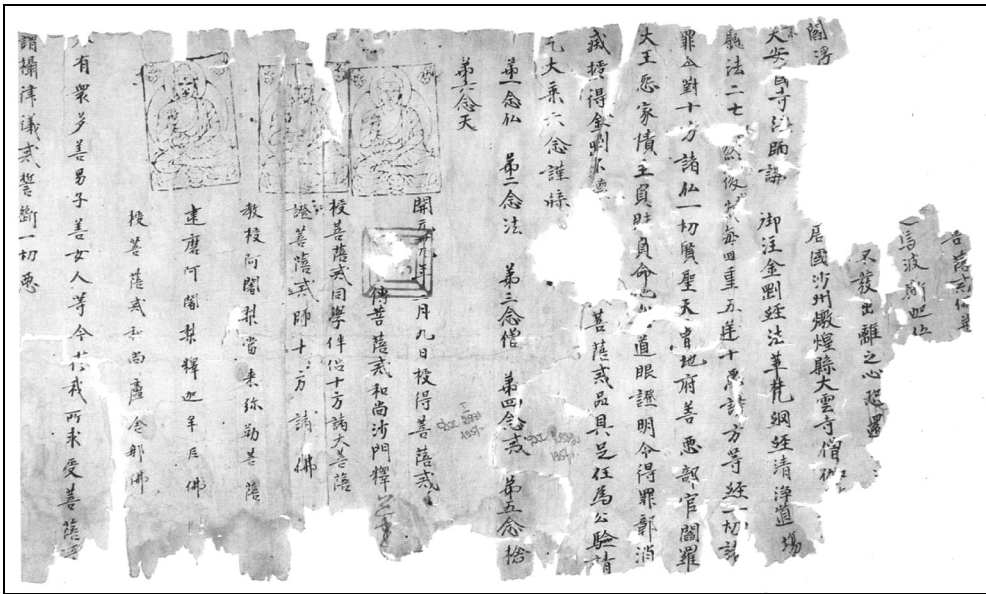 菩薩戒
波斯迦伍
不發出離之心恐還
唐國沙州燉煌縣大雲寺僧伽
大安國寺法師講 御注金剛經法華梵綱經清淨道場
縣法二七 然後 每四重五逆十惡謗方等經一切諸
罪今對十方諸仏一切賢聖天曹地府善惡部官閻羅
大王惡家債主負財負命 道眼證明令得罪鄣消
滅授得金剛不 菩薩戒品具足任為公驗請
乞大乘六念謹牒
第一念仏 第二念法 第三念僧 第四念戒 第五念捨
第六念天
開元廿九年二月九日授得菩薩戒
傳菩薩戒和尚沙門釋
授菩薩戒同學伴侶十方諸大菩薩
證菩薩戒師十方諸佛
教授阿闍梨當来弥勒菩薩
建磨阿闍梨釋迦牟尼佛
授菩薩戒和尚盧舍那佛
有衆多善男子善女人等今於我所求受菩薩
謂攝律儀戒誓斷一切惡